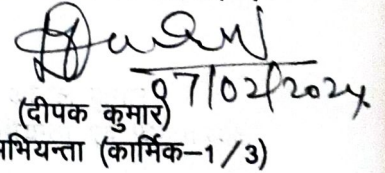 07/02/2024
(दीपक कुमार)
भियन्ता (कार्मिक-1/3)